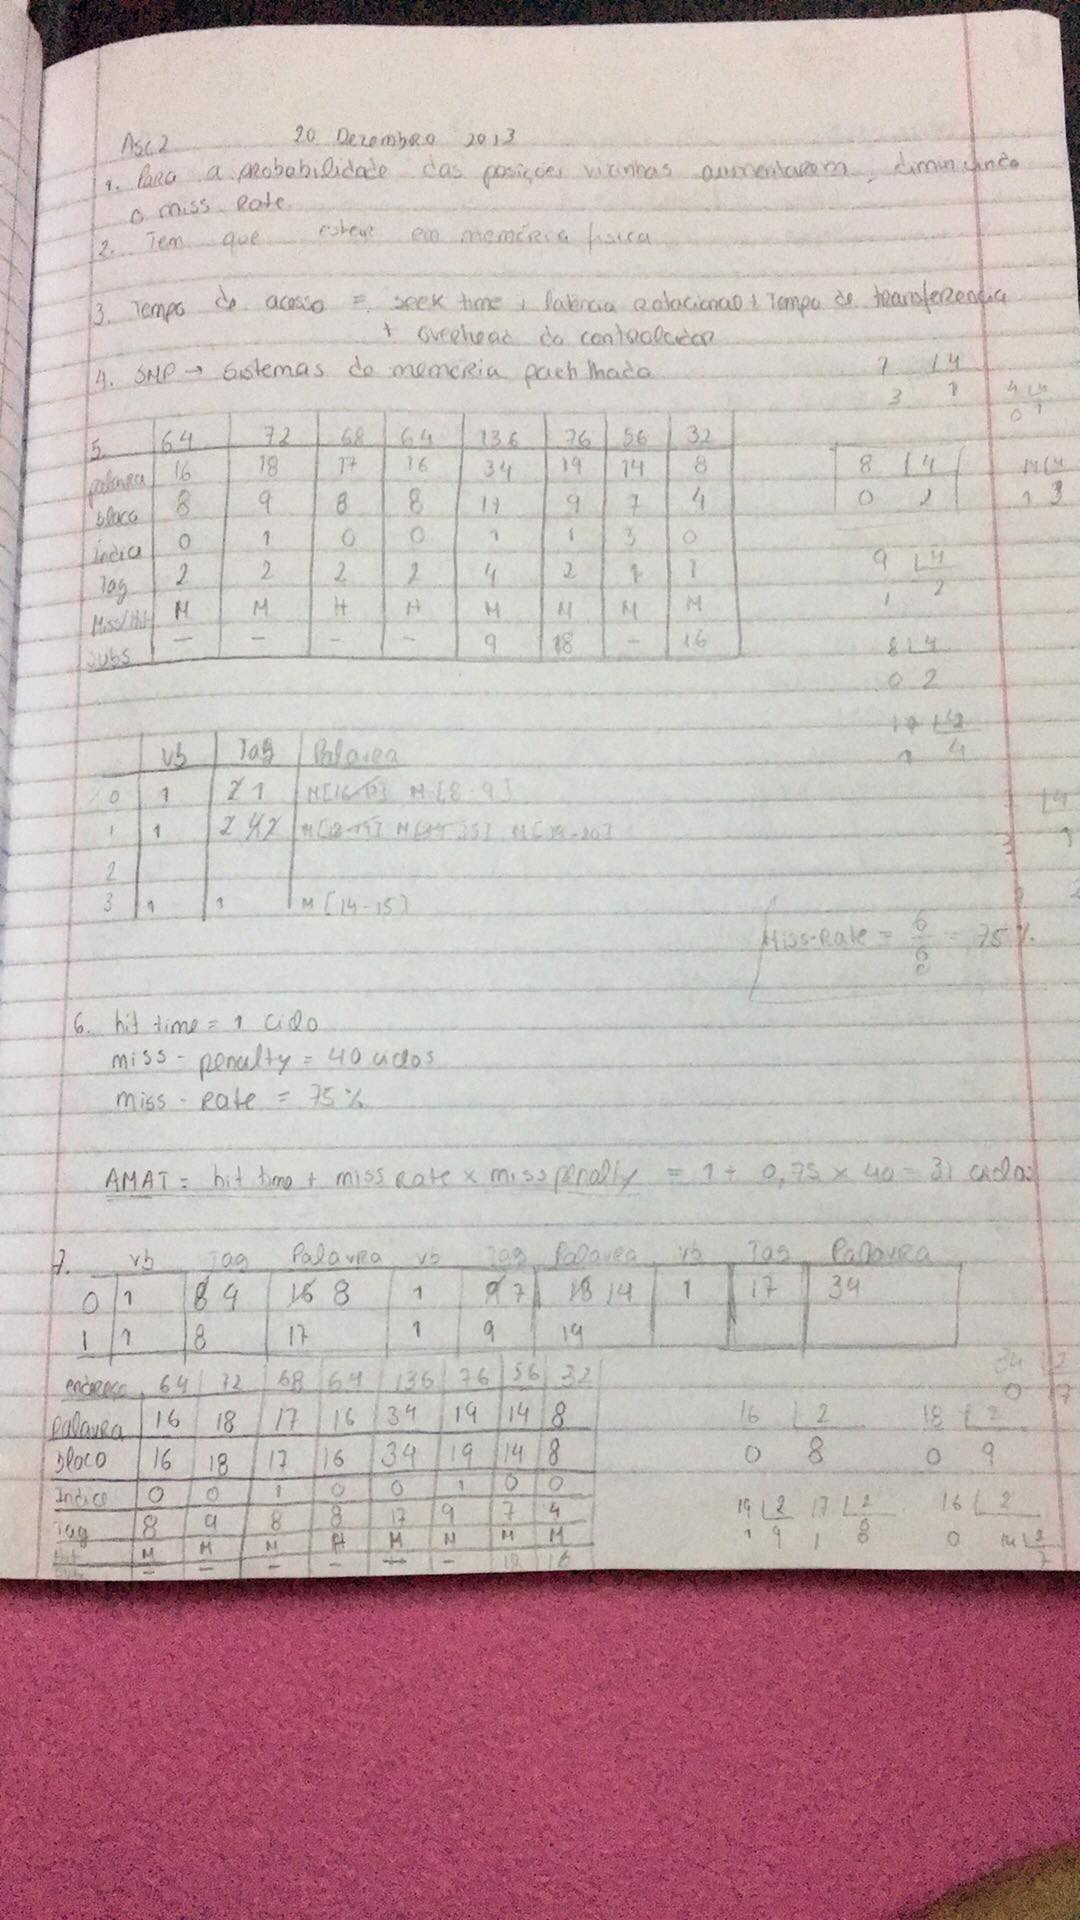 ASC2 20 Dezembro 2013
1. Para a probabilidade das posições vizinhas aumentarem, diminuindo
o miss Rate.
2. Tem que estar em memória física
3. Tempo de acesso = seek time + latência rotacional + Tempo de transferência
+ overhead do controlador
4. SMP → Sistemas de memória partilhada
7 4
3 1
4 4
0 1
5. 64 72 68 64 136 76 56 32
palavra 16 18 17 16 34 19 14 8
8 4
0 2
bloco 8 9 8 8 17 9 7 4
Índice 0 1 0 0 1 1 3 0
Tag 2 2 2 2 4 2 1 1
9 4
1 2
Miss/Hit M M H H M M M M
Subs - - - - 9 18 - 16
8 4
0 2
17 4
1 4
VB Tag Palavra
0 1 2 1 M[16-17] M[8-9]
1 1 2 4 2 M[18-19] M[34-35] M[19-20]
2
3 1 1 M[14-15]
Miss-Rate = 6/8 = 75%
6. hit time = 1 ciclo
miss-penalty = 40 ciclos
miss-Rate = 75%
AMAT = hit time + miss Rate × miss penalty = 1 + 0,75 × 40 = 31 ciclos
7. VB Tag Palavra VB Tag Palavra VB Tag Palavra
0 1 8 4 16 8 1 9 7 18 14 1 17 34
1 1 8 17 1 9 19
endereço 64 72 68 64 136 76 56 32
34 2
0 17
Palavra 16 18 17 16 34 19 14 8
16 2 18 2
bloco 16 18 17 16 34 19 14 8
0 8 0 9
Índice 0 0 1 0 0 1 0 0
Tag 8 9 8 8 17 9 7 4
19 2 17 2 16 2
1 9 1 8 0 14 2
7
M M M H M M M M
- - - - - - 18 16